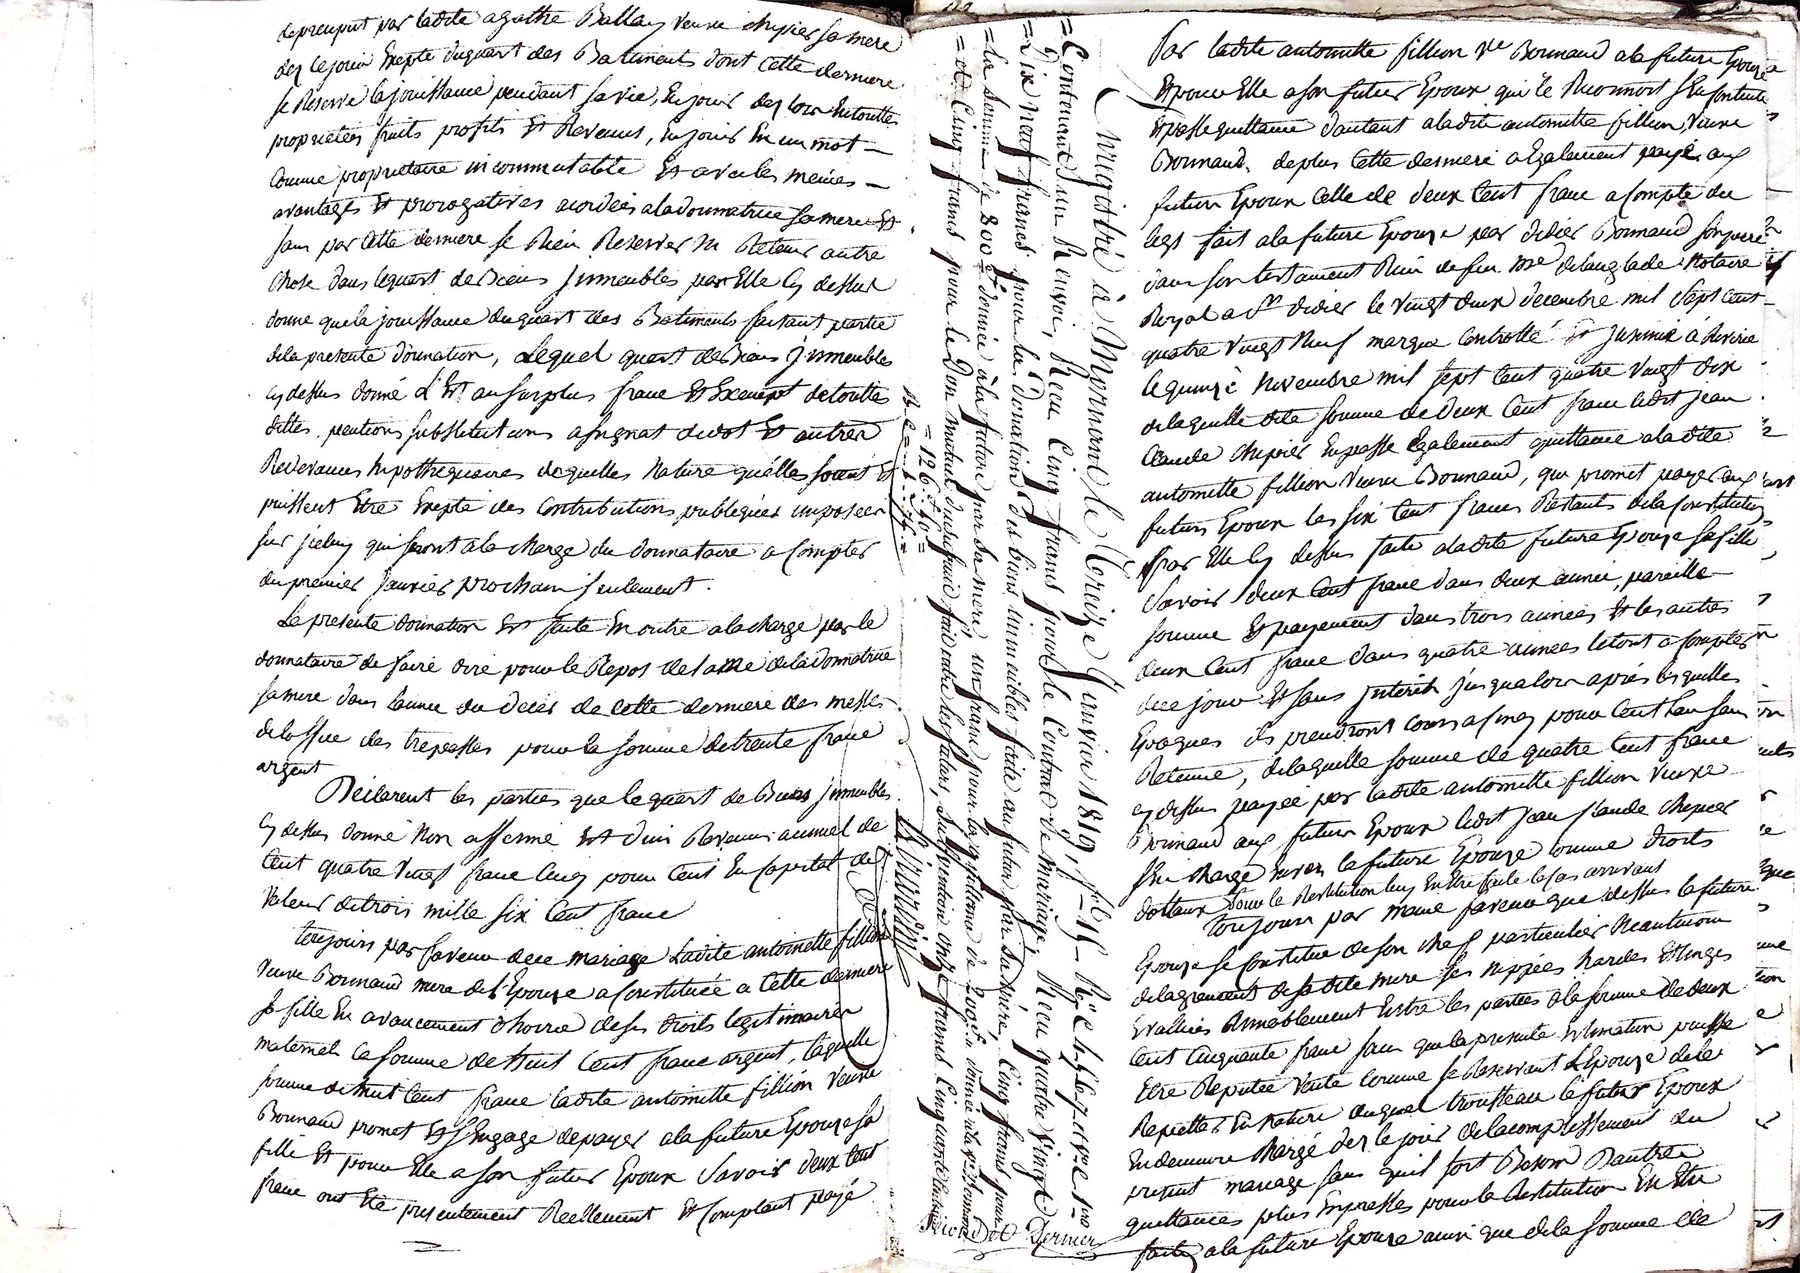 depreuput par ladite agathe Ballay veuve chipier sa mere
dez ce jour Exepté du quart des Batiments dont cette derniere
se Reserve la jouissance pendant sa vie, En jouir dez lors En touttes
proprietées fruits profits Et Revenus, En jouir En un mot
Comme proprietaire incommutable Et avec les memes
avantages Et prerogatives acordées a la donnatrice sa mere Et
sans par cette derniere se Rien Reserver ni Retenir autre
Chose dans le quart de Biens jmmeubles par Elle Cy dessus
donné que la jouissance du quart des Batiments faisant partie
de la presente donnation, Lequel quart de Biens jmmeubles
Cy dessus donné L'Est au surplus franc Et Exempt de touttes
dettes, pentions substitutions assignat de dot Et autres
Redevances hypothequaires de quelles Nature qu'elles soient Et
puissent Etre Exepté des Contributions publiques imposées
sur jceluy qui seront a la charge du donnataire a Compter
du premier janvier prochain seulement.
La presente donnation Est faite En outre a la charge par le
donnataire de faire dire pour le Repos de l'ame de la donnatrice
sa mere dans l'année du décés de cette derniere des messes
de loffice des trepassés pour la somme de trente franc
argent
Déclarent les parties que le quart de Biens jmmeubles
Cy dessus donné Non affermé Est d'un Revenu annuel de
Cent quatre vingt franc Cinq pour Cent En Capital de
valeur de trois mille six Cent franc
toujours par faveur de ce mariage Ladite antoinette fillion
veuve Bonnand mere de l'Epouze a Constitué a Cette derniere
sa fille En avancement d'hoirie de ses droits legitimaires
maternels la somme de huit Cent franc argent, laquelle
somme de huit Cent franc ladite antoinette fillion veuve
Bonnand promet Et s'Engage de payer a la future Epouze sa
fille Et pour Elle a son futur Epoux Savoir deux Cent
franc ont Eté presentement Reellement Et Comptant payé
= 126.f 40c =
Enrigistré à Mornant le treize Janvier 1819, f.o 15 R.o C. 4, 5, 6, 7, et v.o C. 1.re
= Contenant un Renvoi, Reçu Cinq francs pour le Contrat de mariage, Reçu quatre vingt
= Dix neuf francs pour la donation des biens immeubles faite au futur par sa mère, Cinq francs pour
= la somme de 800.f donnée à la future par sa mère un franc pour la quittance de 200.f donnée à la v.e Bonnand
= et Cinq francs pour le Don mutuel d'usufruit fait entre les futurs, Subvention onze francs Cinquante Centimes
Second et Dernier
Par ladite antoinette fillion V.e Bonnand a la future Epouze
Et pour Elle a son futur Epoux qui le Reconnoit s'En Contente
Et passe quittance d'autant a ladite antoinette fillion, veuve
Bonnand. de plus Cette derniere a Egalement payé aux
futurs Epoux Celle de deux Cent franc a Compte du
legs fait a la future Epouze par didier Bonnand son pere
dans son testament Reçu de feu M.e delanglade Notaire
Royal a S.t didier le vingt deux decembre mil sept cent
quatre vingt Neuf marque Controllé Et Jnsinué à Riverie
le quinze Novembre mil sept Cent quatre vingt dix
de laquelle dite somme de deux Cent franc ledit jean
Claude chipier En passe Egalement quittance a ladite
antoinette fillion veuve Bonnand, qui promet payer aux
futurs Epoux les six Cent francs Restants de la Constitution
par Elle Cy dessus faite a ladite future Epouze sa fille
Savoir deux Cent franc dans deux années, pareille
somme Et payement dans trois années Et les autres
deux Cent franc dans quatre années le tout a Compter
de ce jour Et sans jnterêts jusqu'alors aprés lesquelles
Epoques ils prendront cours a Cinq pour Cent l'an sans
Retenue, de laquelle somme de quatre Cent franc
cy dessus payée par ladite antoinette fillion veuve
Bonnand aux futurs Epoux ledit jean Claude chipier
s'En charge Envers la future Epouze comme droits
dottaux pour la Restitution luy En Etre faite le Cas arrivant
toujours par meme faveur que dessus la future
Epouze se Constitue de son chef particulier Neantmoins
de l'agrement de sa dite mere ses nippées hardes Et linges
Evalluées Amiablement Entre les parties a la somme de deux
Cent Cinquante franc sans que la presente Estimation puisse
Etre Reputée vente Comme se Reservant L'Epouze de le
Repetter En Nature duquel trousseau le futur Epoux
En demeure chargé dez le jour de lacomplissement du
present mariage sans qu'il soit Besoin d'autres
quittances plus Expresses pour la Restitution En Etre
faite a la future Epouze ainsi que de la somme de